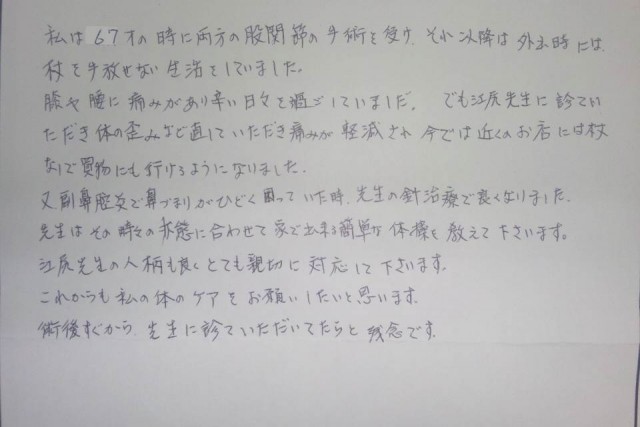 私は67才の時に両方の股関節の手術を受け、それ以降は外出時には、
杖を手放せない生活をしていました。
膝や腰に痛みがあり辛い日々を過ごしていました。でも江尻先生に診てい
ただき体の歪みなど直していただき痛みが軽減され今では近くのお店には杖
なしで買物にも行けるようになりました。
又副鼻腔炎で鼻づまりがひどく困っていた時、先生の針治療で良くなりました。
先生はその時々の状態に合わせて家で出来る簡単な体操を教えて下さいます。
江尻先生の人柄も良くとても親切に対応して下さいます。
これからも私の体のケアをお願いしたいと思います。
術後すぐから、先生に診ていただいてたらと残念です。